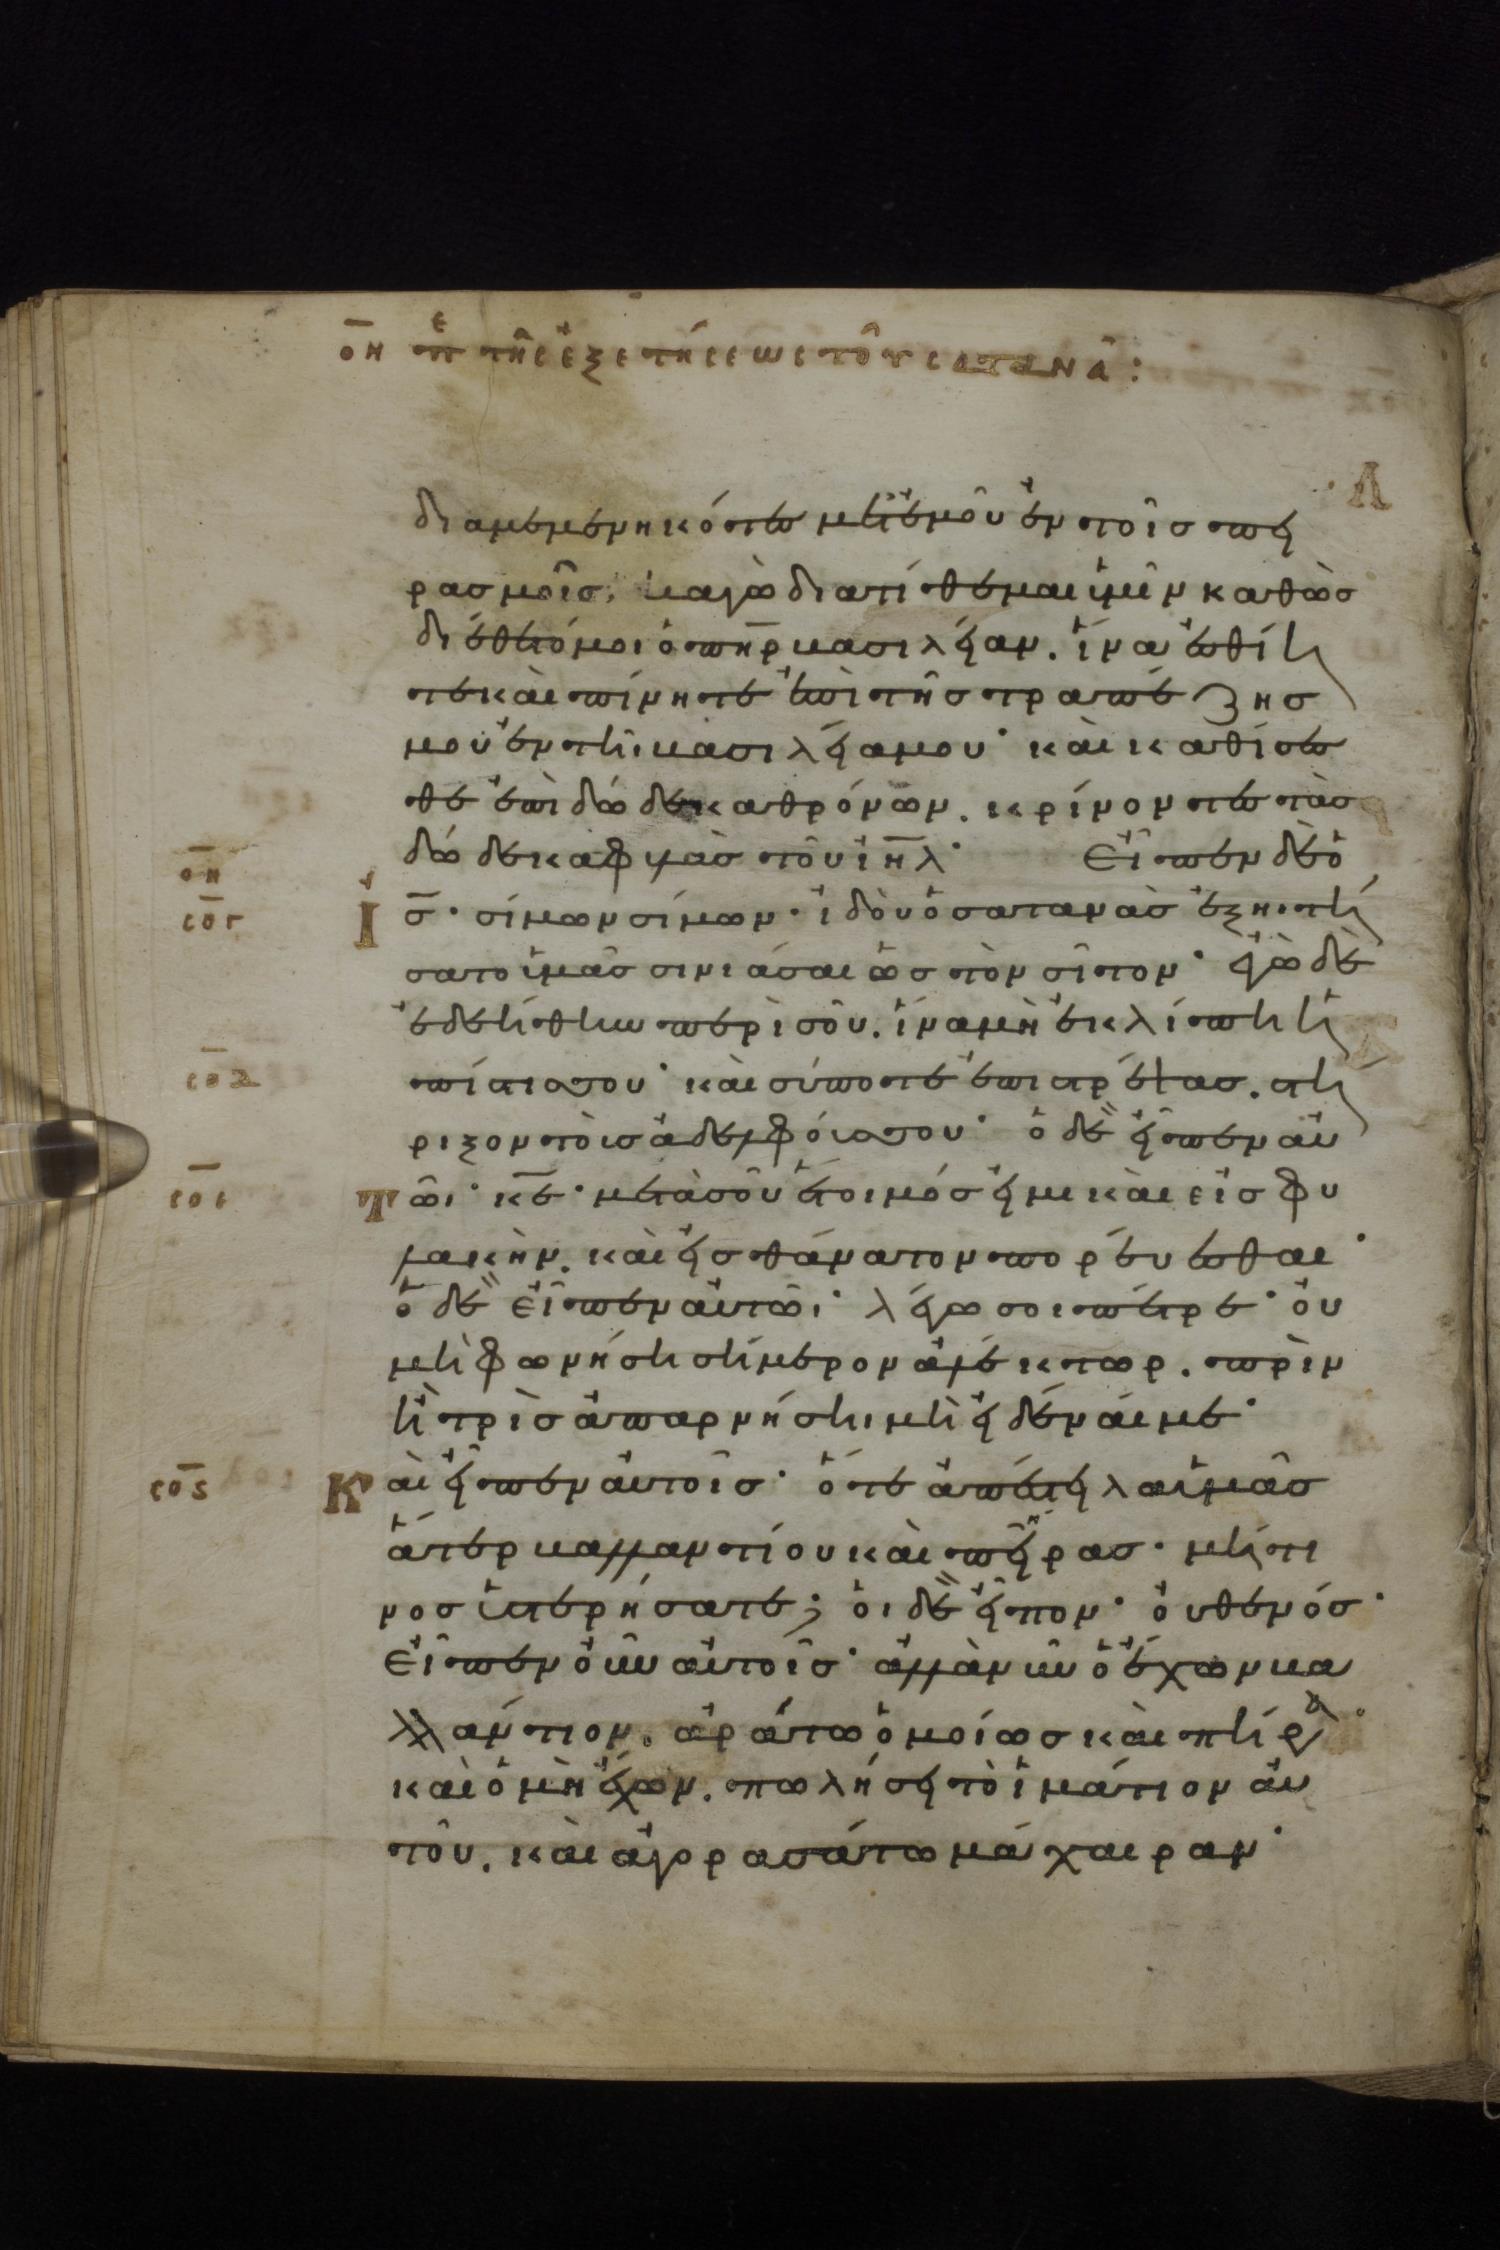 οη πε τῆς ἐξετήσεως τοῦ σατανᾶ:
διαμεμενηκότες μετ' ἐμοῦ ἐν τοῖς πει
ρασμοῖς. καγὼ διατίθεμαι ὑμῖν καθὼσ
διέθετό μοι ὁ πηρ βασιλείαν. ἵνα ἐσθίη
τε καὶ πίνητε ἐπὶ τῆς τραπέζησ
μου ἐν τῆ βασιλεία μου· καὶ καθίσε
θε ἐπὶ δώδεκα θρόνων. κρίνοντες τὰσ
δώδεκα φυλὰσ τοῦ ιηλ· Εἶπεν δὲ ὁ
οη
σογ
ισ· σίμων σίμων· ἰδοὺ ὁ σατανὰσ ἐξητή
σατο ὑμᾶσ σινιάσαι ὡσ τὸν σῖτον· ἐγὼ δὲ
ἐδεήθην περὶ σοῦ. ἵνα μὴ ἐκλίπη ἡ
σοδ
πίστισ σου· καὶ σύ ποτε ἐπιστρέψασ. στή
ριξον τοὺσ ἀδελφούσ σου· ὁ δὲ εἶπεν αὐ
σοε
Τῶι· κε· μετὰ σοῦ ἕτοιμόσ εἰμι καὶ εἰσ φυ
λακὴν. καὶ εἰσ θάνατον πορεύεσθαι·
ὁ δὲ εἶπεν αὐτῶι· λέγω σοι πέτρε· οὐ
μὴ φωνήσῃ σήμερον ἀλέκτωρ. πρὶν
ἢ τρὶσ ἀπαρνήσηι μὴ εἰδέναι με·
σος
Καὶ εἶπεν αὐτοῖσ· ὅτε ἀπέστειλα ὑμᾶσ
ἄτερ βαλλαντίου καὶ πήρασ· μή τι
νοσ ὑστερήσατε; οἱ δὲ εἶπον· οὐθενόσ·
Εἶπεν οὖν αὐτοῖσ· ἀλλὰ νῦν ὁ ἔχων βα
λλάντιον. ἀράτω ὁμοίωσ καὶ πήραν·
καὶ ὁ μὴ ἔχων. πωλήσει τὸ ἱμάτιον αὐ
τοῦ. καὶ ἀγορασάτω μάχαιραν·